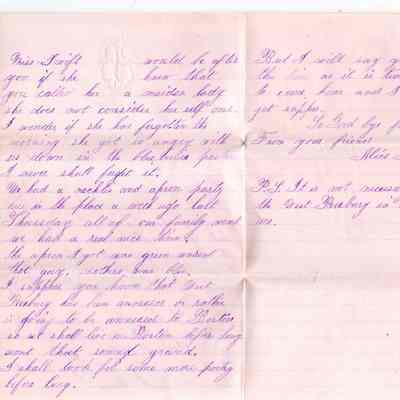 Miss Swift would be after
you if she knew that
you called her a maiden lady
she does not consider herself one.
I wonder if she has forgotten the
morning she got so angry with
us down in the
I never shall forget it.
We had a necktie and apron party
here in the place a week ago last
Thursday all of our family went
we had a real nice time.
the apron I got was green wasent
that gay. mothers was blue.
I suppose you know that West
Roxbury has been annexed or rather
is going to be annexed to Boston
so we shall live in Boston before long
wont that sound grand.
I shall look for some more poetry
before long.
But I will say g
the as it is tim
to come home and I
get supper.
So Good bye f
From your friend
Alice
P.S. It is not necessa
the West Roxbury in
me.